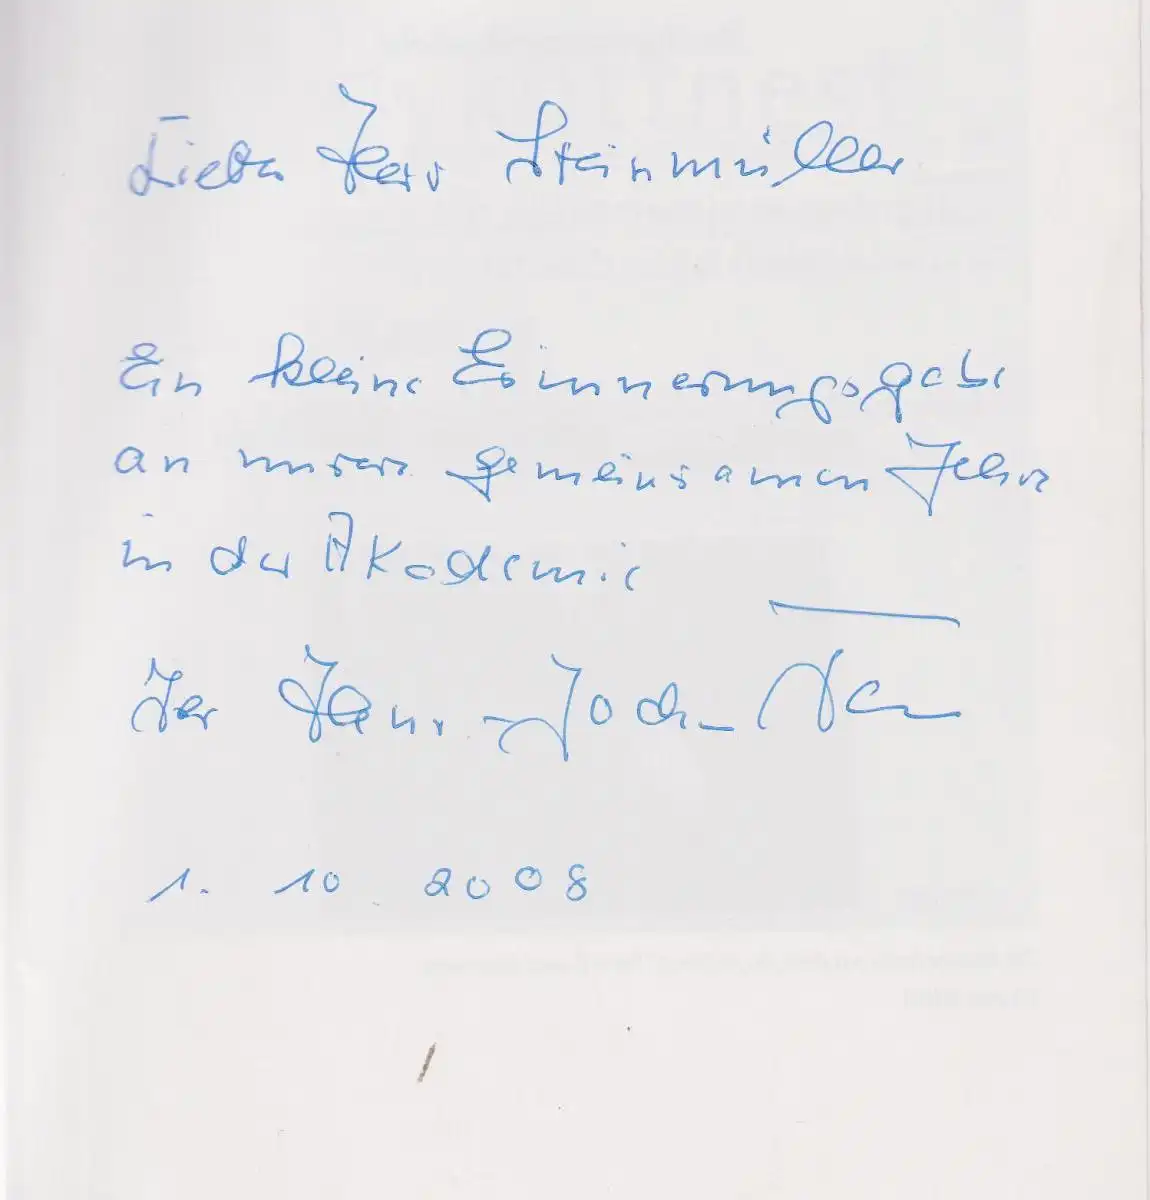 Lieber Herr Steinmüller
Ein kleine Erinnerungsgabe
an unsere gemeinsamen Jahre
in der Akademie
Ihr Hans-
1. 10 2008